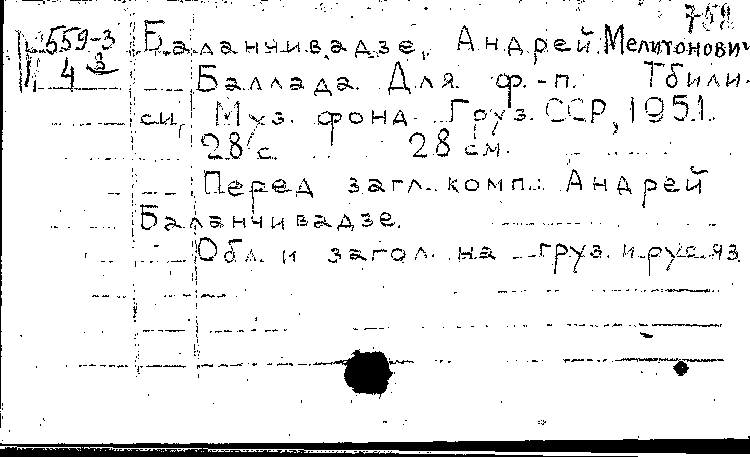 752
559-3
4 3
Баланчивадзе, Андрей Мелитонович
Баллада. Для ф.-п. Тбили-
си, Муз. фонд Груз. ССР, 1951.
28 с. 28 см.
Перед загл. комп.: Андрей
Баланчивадзе.
Обл. и загол. на груз. и рус. яз.